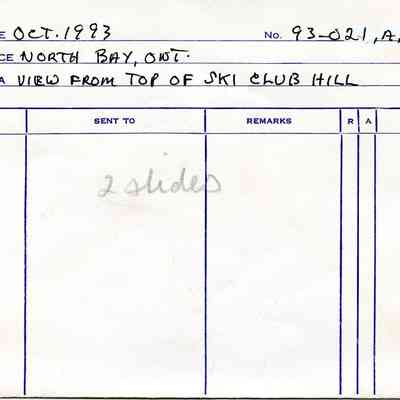 E OCT. 1993 No. 93-021, A,
CE NORTH BAY, ONT.
A VIEW FROM TOP OF SKI CLUB HILL
SENT TO REMARKS R A
2 slides